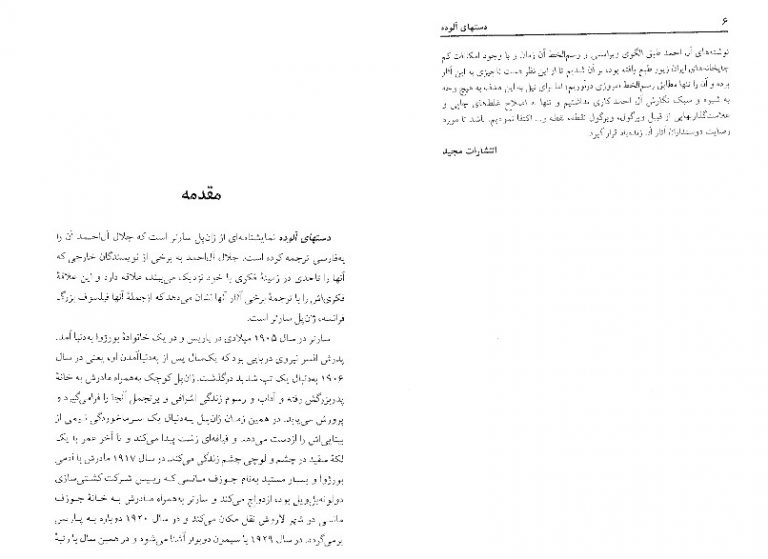 ۶
دستهای آلوده
نوشته‌های آل احمد طبق الگوی ویرایشی و رسم‌الخط آن زمان و با وجود امکانات کم
چاپخانه‌های ایران زیور طبع یافته بود، بر آن شدیم تا از این نظر دست ناچیزی به این آثار
برده و آن را تنها مطابق رسم‌الخط امروزی درآوریم؛ اما برای نیل به این هدف به هیچ وجه
به شیوه و سبک نگارش آل احمد کاری نداشتیم و تنها به اصلاح غلطهای چاپی و
علامت‌گذاریهایی از قبیل ویرگول، ویرگول نقطه، نقطه و... اکتفا نمودیم. باشد تا مورد
رضایت دوستداران آثار آن زنده‌یاد قرار گیرد.
انتشارات مجید
مقدمه
دستهای آلوده نمایشنامه‌ای از ژان‌پل سارتر است که جلال آل‌احمد آن را
به‌فارسی ترجمه کرده است. جلال آل‌احمد به برخی از نویسندگان خارجی که
آنها را تاحدی در زمینهٔ فکری با خود نزدیک می‌بیند، علاقه دارد و این علاقهٔ
فکری‌اش را با ترجمهٔ برخی آثار آنها نشان می‌دهد که ازجملهٔ آنها فیلسوف بزرگ
فرانسه، ژان‌پل سارتر است.
سارتر در سال ۱۹۰۵ میلادی در پاریس و در یک خانوادهٔ بورژوا به‌دنیا آمد.
پدرش افسر نیروی دریایی بود که یک‌سال پس از به‌دنیاآمدن او، یعنی در سال
۱۹۰۶ به‌دنبال یک تب شدید درگذشت. ژان‌پل کوچک به‌همراه مادرش به خانهٔ
پدربزرگش رفته و آداب و رسوم زندگی اشرافی و پرتجمل آنجا را فرامی‌گیرد و
پرورش می‌یابد. در همین زمان ژان‌پل به‌دنبال یک سرماخوردگی نیمی از
بینایی‌اش را ازدست می‌دهد و قیافه‌ای زشت پیدا می‌کند و تا آخر عمر با یک
لکهٔ سفید در چشم و لوچی چشم زندگی می‌کند. در سال ۱۹۱۷ مادرش با آدمی
بورژوا و بسیار مستبد به‌نام جوزف مانسی که رییس شرکت کشتی‌سازی
بود، ازدواج می‌کند و سارتر به‌همراه مادرش به خانهٔ جوزف
مانسی در شهر لاروش نقل مکان می‌کند و در سال ۱۹۲۰ دوباره به پاریس
برمی‌گردد. در سال ۱۹۲۹ با سیمون دوبوار آشنا می‌شود و در همین سال با رتبهٔ